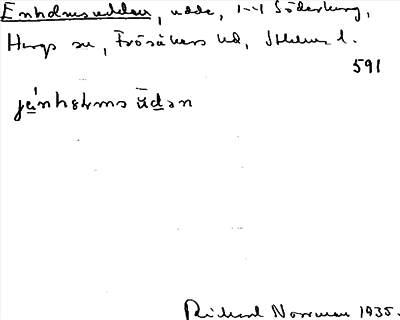 Enholmsudden, udde, i-l Söderberg,
Hargs sn, Frösåkers hd, Sthlms l.
591
Richard Norrman 1935.